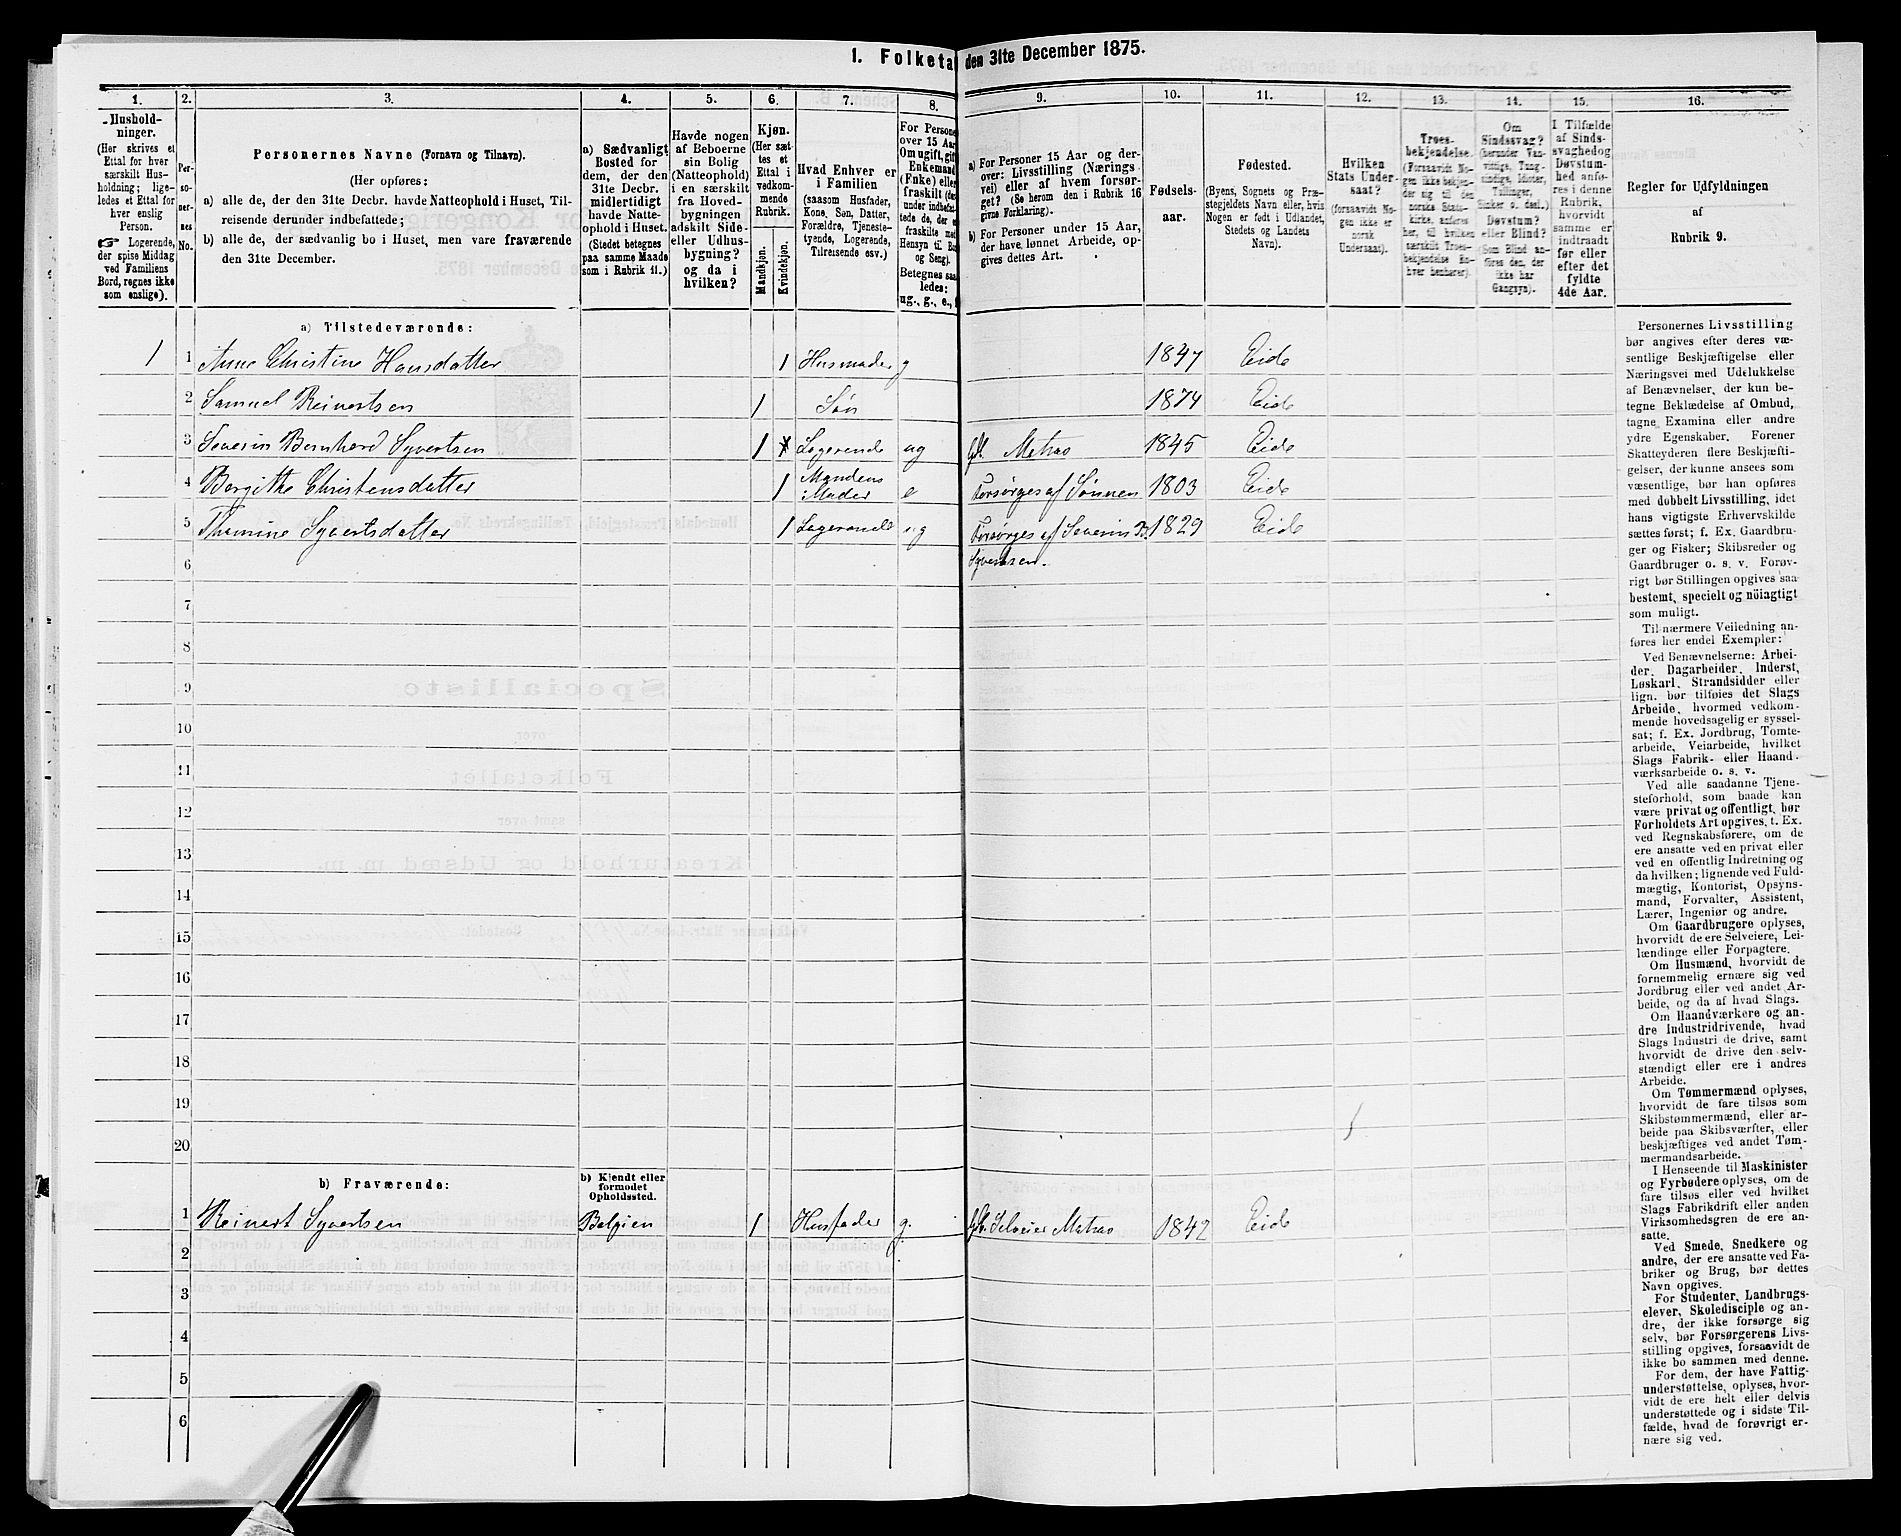 1. Folketa den 31te December 1875.
1. 2. 3. 4. 5. 6. 7. 8. 9. 10. 11. 12. 13. 14. 15. 16.
Hushold-
ninger.
(Her skrives et
Ettal for hver
særskilt Hus-
holdning; lige-
ledes et Ettal for
hver enslig
Person.
☞ Logerende,
der spise Middag
ved Familiens
Bord, regnes ikke
som enslige).
Per-
so-
ner-
nes
No.
Personernes Navne (Fornavn og Tilnavn).
(Her opføres:
a) alle de, der den 31te Decbr. havde Natteophold i Huset, Til-
reisende derunder indbefattede;
b) alle de, der sædvanlig bo i Huset, men vare fraværende
den 31te December.
a) Sædvanligt
Bosted for
dem, der den
31te Decbr.
midlertidigt
havde Natte-
ophold i Huset.
(Stedet betegnes
paa samme Maade
som i Rubrik 11.)
Havde nogen
af Beboerne
sin Bolig
(Natteophold)
i en særskilt
fra Hoved-
bygningen
adskilt Side-
eller Udhus-
bygning?
og da i
hvilken?
Kjøn.
(Her sæt-
tes et
Ettal i
vedkom-
mende
Rubrik.
Mandkjøn.
Kvindekjøn.
Hvad Enhver er
i Familien
(saasom Husfader,
Kone, Søn, Datter,
Forældre, Tjeneste-
tyende, Logerende,
Tilreisende osv.)
For Persone
over 15 Aar
Om ugift, gift
Enkemand
(Enke) eller
fraskilt (de
under indbefat-
tede de, der e
fraskilte med
Hensyn til Bo
og Seng).
Betegnes saa
ledes:
ug., g., e.,
a) For Personer 15 Aar og der-
over: Livsstilling (Nærings-
vei) eller af hvem forsør-
get? (Se herom den i Rubrik 16
givne Forklaring).
b) For Personer under 15 Aar,
der have lønnet Arbeide, op-
gives dettes Art.
Fødsels-
aar.
Fødested.
(Byens, Sognets og Præ-
stegjeldets Navn eller, hvis
Nogen er født i Udlandet,
Stedets og Landets
Navn).
Hvilken
Stats Under-
saat?
(forsaavidt No-
gen ikke er
norsk
Undersaat).
Troes-
bekjendelse.
(Forsaavidt No-
gen ikke bekjen-
der sig til den
norske Stats-
kirke, anføres
her, til hvilken
særskilt Troes-
bekjendelse En-
hver henhører).
Om
Sindssvag?
(herunder Van-
vittige, Tung-
sindige, Idioter,
Tullinger,
Sinker o. desl.)
Døvstum?
eller Blind?
(Som Blind an-
føres den, der
ikke har
Gangsyn).
I Tilfælde
af Sinds-
svaghed og
Døvstum-
hed anfø-
res i denne
Rubrik,
hvorvidt
samme er
indtraadt
før eller
efter det
fyldte
4de Aar.
Regler for Udfyldningen
af
Rubrik 9.
a) Tilstedeværende:
1 1 Anne Christine Hansdatter 1 Husmoder g 1847 Eide
2 Samuel Reinertsen 1 Søn 1874 Eide
3 Severin Bernhard Syvertsen 1 Logerende ug Matros 1845 Eide
4 Borgitha Christensdatter 1 Mandens Moder e Forsørges af Sønnen 1803 Eide
5 Thomine Syvertsdatter 1 Logerende ug Forsørges af Severin B. 1829 Eide
6 Syvertsen.
7
8
9
10
11
12
13
14
15
16
17
18
19
20
b) Fraværende:
b) Kjendt eller
formodet
Opholdssted.
1 Reinert Syvertsen Belgien 1 Husfader g. Selveier Matros 1842 Eide
2
3
4
5
6
Personernes Livsstilling
bør angives efter deres væ-
sentlige Beskjæftigelse eller
Næringsvei med Udelukkelse
af Benævnelser, der kun be-
tegne Beklædelse af Ombud,
tagne Examina eller andre
ydre Egenskaber. Forener
Skatteyderen flere Beskjæfti-
gelser, der kunne ansees som
væsentlige, bør han opføres
med dobbelt Livsstilling, idet
hans vigtigste Erhvervskilde
sættes først; f. Ex. Gaardbru-
ger og Fisker; Skibsreder og
Gaardbruger o. s. v. Forøv-
rigt bør Stillingen opgives saa
bestemt, specielt og nöiagtigt
som muligt.
Til nærmere Veiledning an-
føres her endel Exempler:
Ved Benævnelserne: Arbei-
der, Dagarbeider, Inderst,
Løskarl, Strandsidder eller
lign. bør tilføies det Slags
Arbeide, hvormed vedkom-
mende hovedsagelig er syssel-
sat; f. Ex. Jordbrug, Tomte-
arbeide, Veiarbeide, hvilket
Slags Fabrik- eller Haand-
værksarbeide o. s. v.
Ved alle saadanne Tjene-
steforhold, som baade kan
være privat og offentligt, bør
Forholdets Art opgives, t. Ex.
ved Regnskabsførere, om de
ere ansatte ved en privat eller
ved en offentlig Indretning og
da hvilken; lignende ved Fuld-
mægtig, Kontorist, Opsyns-
mand, Forvalter, Assistent,
Lærer, Ingeniør og andre.
Om Gaardbrugere oplyses,
hvorvidt de ere Selveiere, Lei-
lændinge eller Forpagtere.
Om Husmænd, hvorvidt de
fornemmelig ernære sig ved
Jordbrug eller ved andet Ar-
beide, og da af hvad Slags.
Om Haandværkere og an-
dre Industridrivende, hvad
Slags Industri de drive, samt
hvorvidt de drive den selv-
stændigt eller ere i andres
Arbeide.
Om Tømmermænd oplyses,
hvorvidt de fare tilsøs som
Skibstømmermænd, eller ar-
beide paa Skibsværfter, eller
beskjæftiges ved andet Tøm-
mermandsarbeide.
I Henseende til Maskinister
og Fyrbødere oplyses, om de
fare tilsøs eller ved hvilket
Slags Fabrikdrift eller anden
Virksomhedsgren de ere an-
satte.
Ved Smede, Snedkere og
andre, der ere ansatte ved Fa-
briker og Brug, bør dettes
Navn opgives.
For Studenter, Landbrugs-
elever, Skoledisciple og an-
dre, der ikke forsørge sig
selv, bør Forsørgerens Livs-
stilling opgives, forsaavidt de
ikke bo sammen med denne.
For dem, der have Fattig-
understøttelse, oplyses, hvor-
vidt de ere helt eller delvis
understøttede og i sidste Til-
fælde, hvad de forøvrigt er-
nære sig ved.